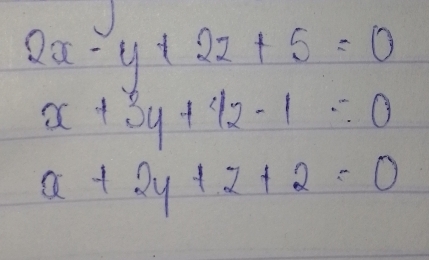 2x - y + 2z + 5 = 0
x + 3y + 4z - 1 = 0
x + 2y + z + 2 = 0